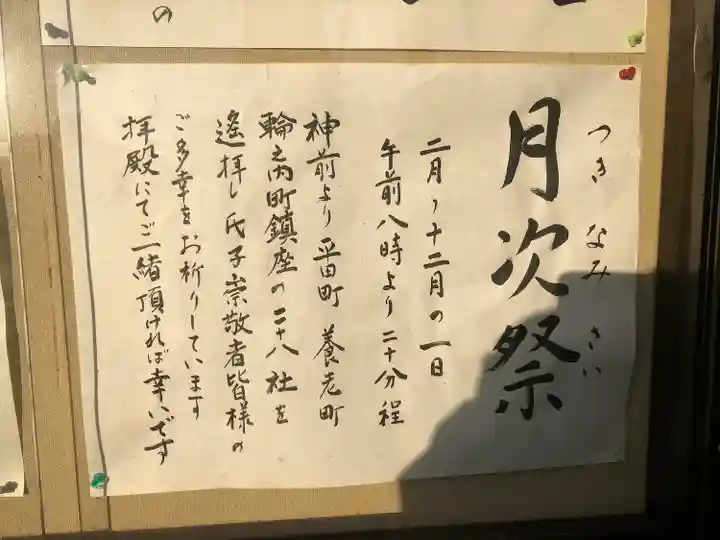 の
月次祭
つきなみさい
二月〜十二月の一日
午前八時より二十分程
神前より平田町 養老町
輪之内町鎮座の二十八社を
遙拝し氏子崇敬者皆様の
ご多幸をお祈りしています
拝殿にてご一緒頂ければ幸いです